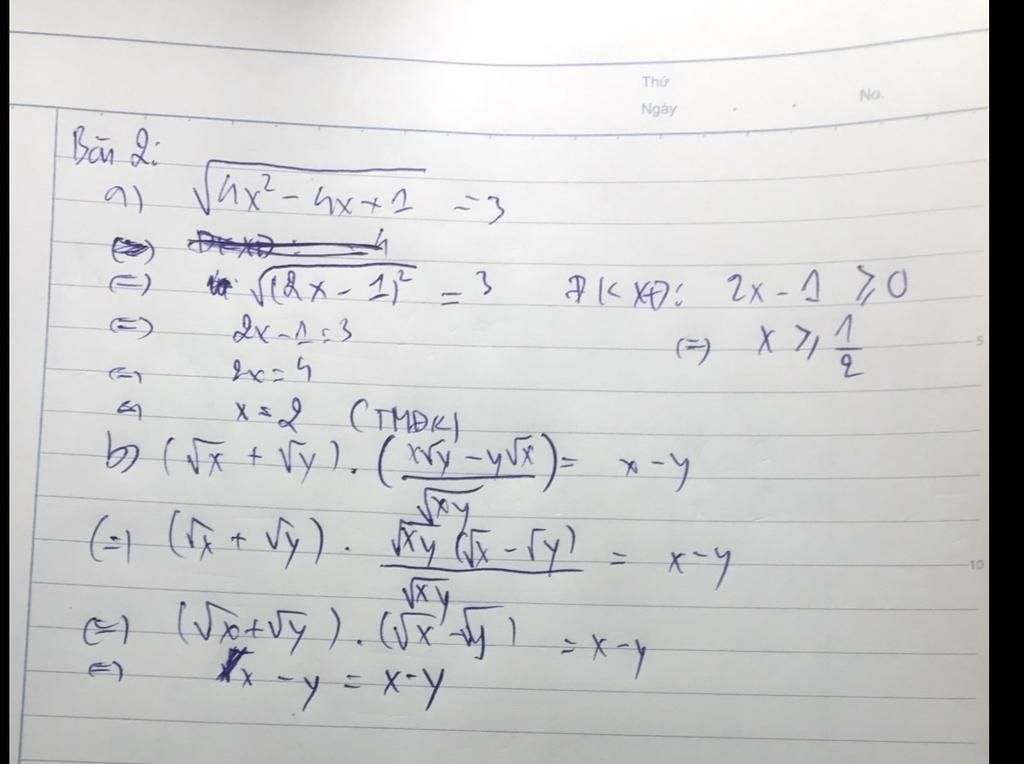 Thứ
Ngày . . No.
Bài 2:
a) √(4x² - 4x + 1) = 3
(=) √((2x - 1)²) = 3 ĐKXĐ: 2x - 1 ≥ 0
(=) 2x - 1 = 3 (=) x ≥ 1/2
(=) 2x = 4
(=) x = 2 (TMĐK)
b) (√x + √y) . ((x√y - y√x)/√xy) = x - y
(=) (√x + √y) . (√xy (√x - √y))/√xy = x - y
(=) (√x + √y) . (√x - √y) = x - y
(=) x - y = x - y
5
10